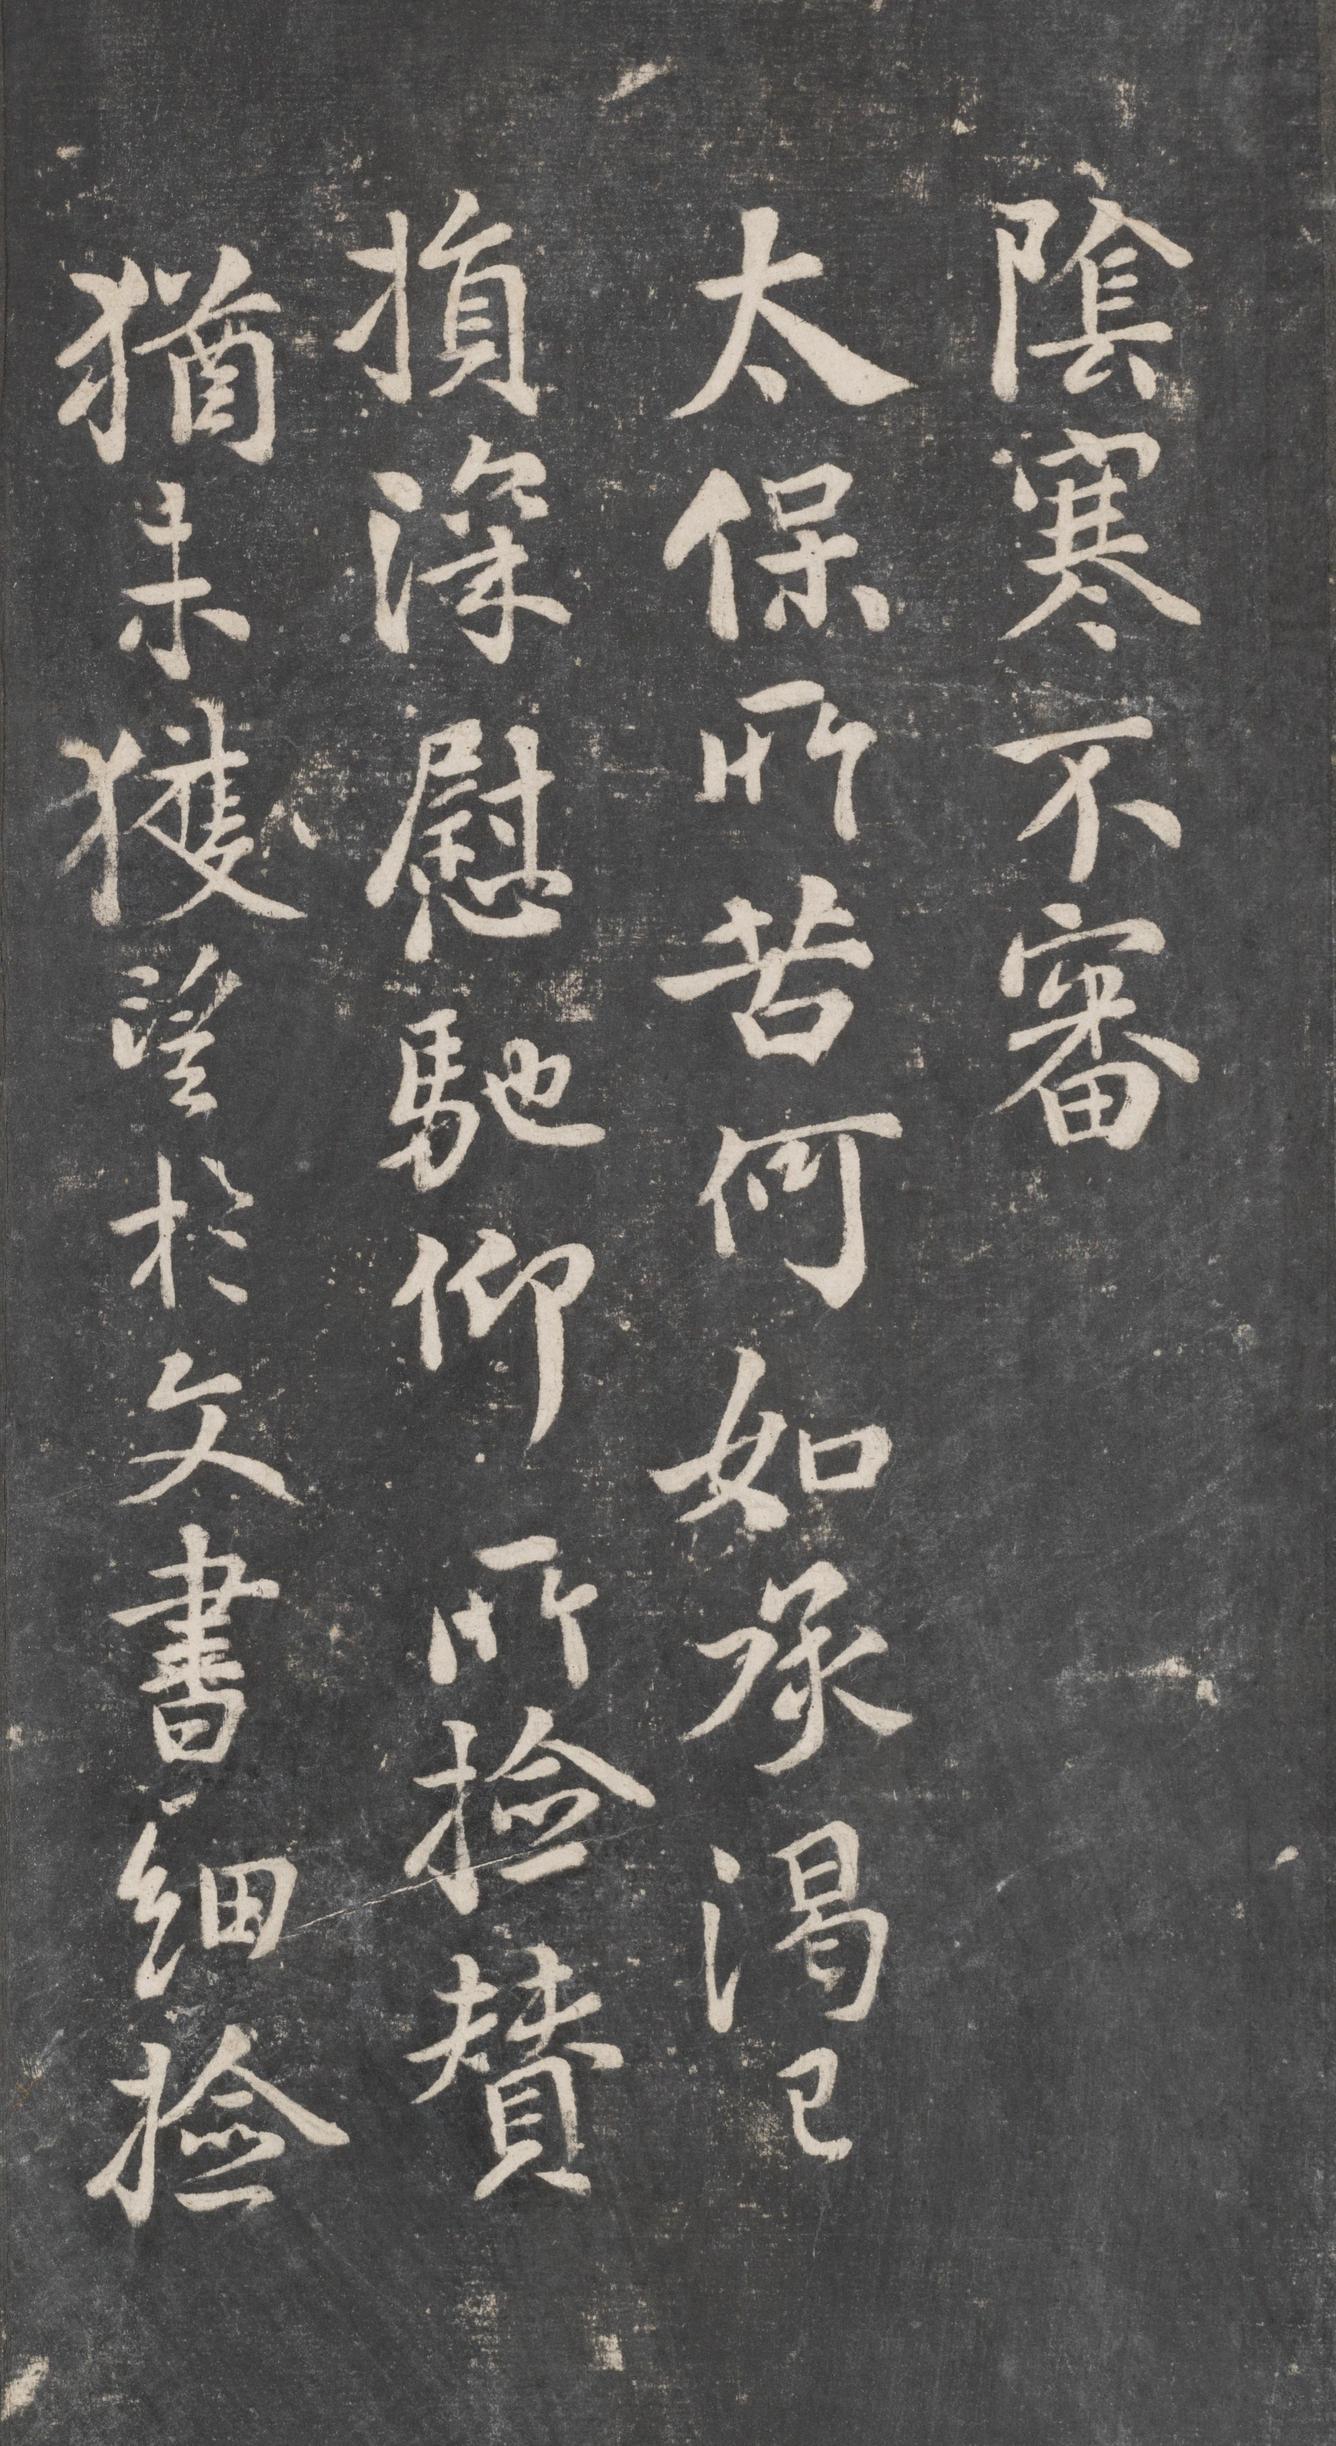 陰寒不審
太保所苦何如承渴已
損深慰馳仰所撿賛
猶未獲望於文書細撿